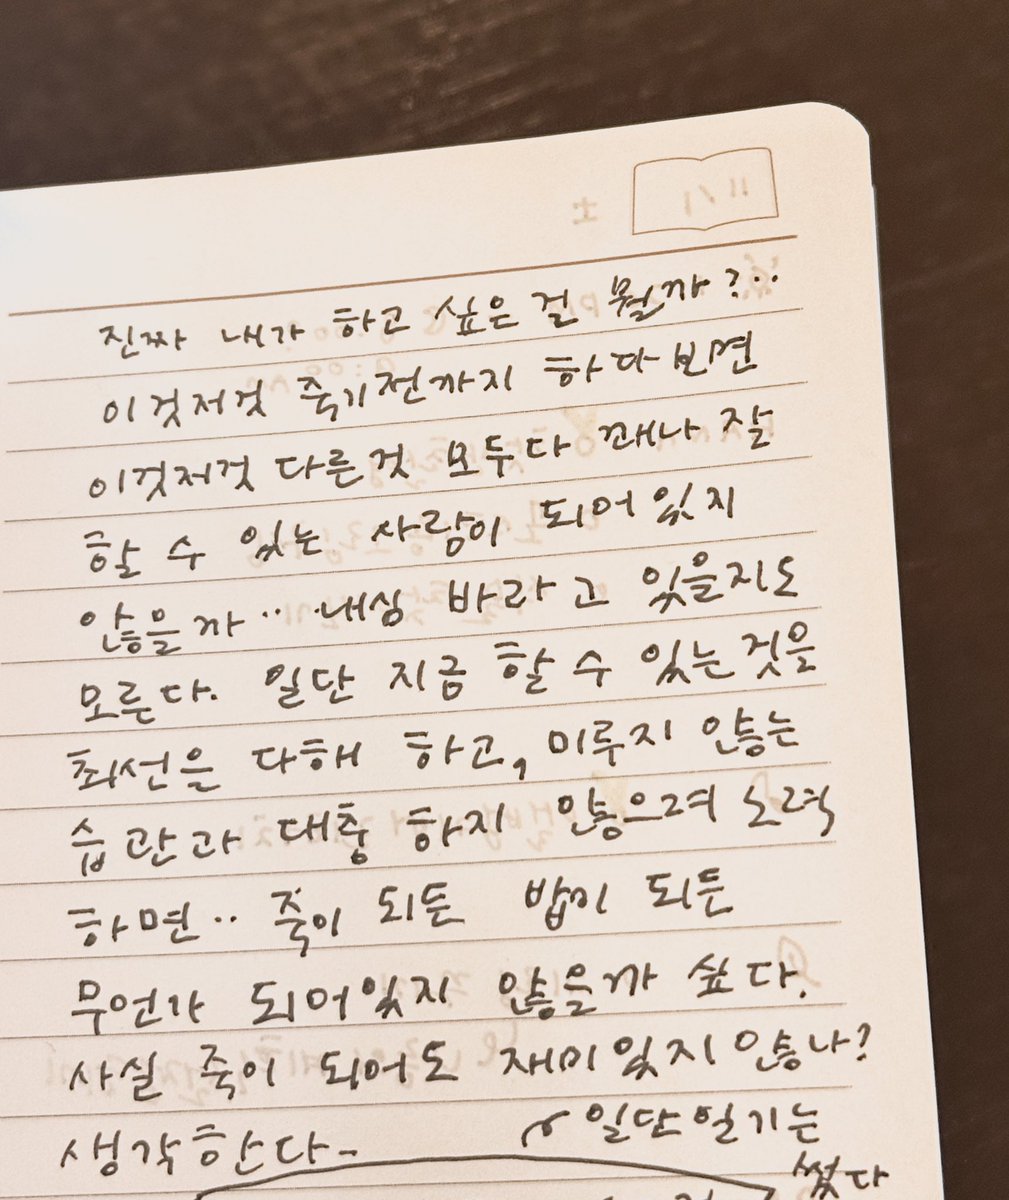 진짜 내가 하고 싶은 걸 뭘까?..
이것저것 죽기전까지 하다보면
이것저것 다른것 모두다 꽤나 잘
할 수 있는 사람이 되어있지
않을까.. 내심 바라고 있을지도
모른다. 일단 지금 할 수 있는것을
최선을 다해 하고, 미루지 않는
습관과 대충 하지 않으려 노력
하면.. 죽이 되든 밥이 되든
무언가 되어있지 않을까 싶다.
사실 죽이 되어도 재미있지 않나?
생각한다-
일단 일기는
썼다